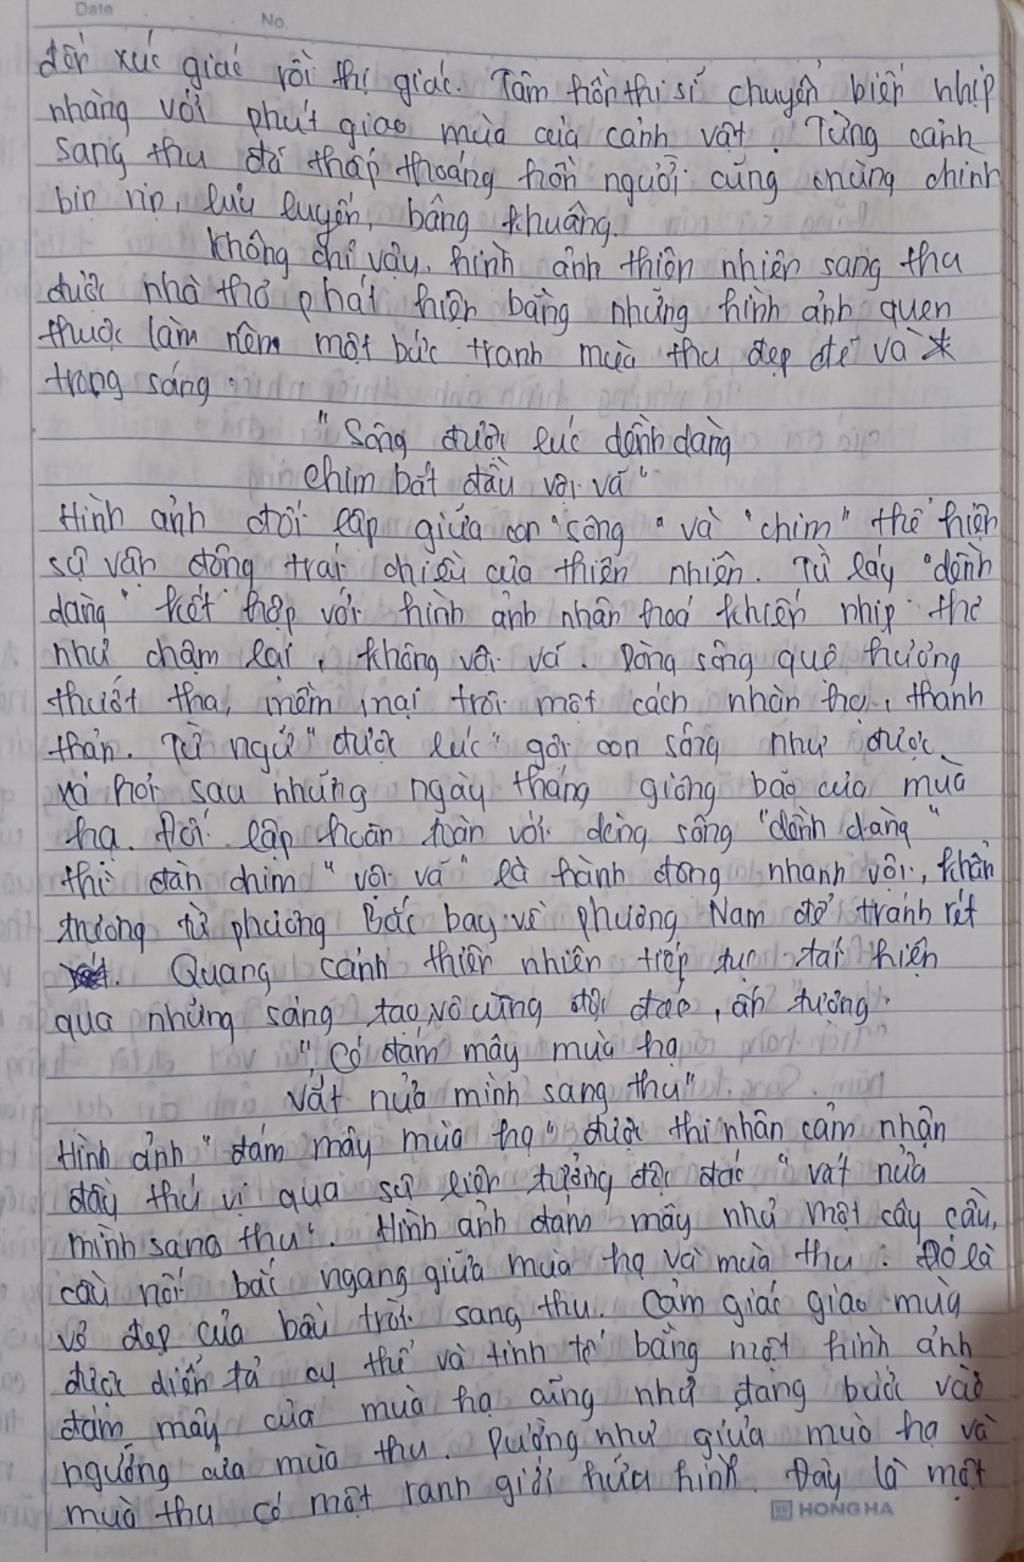 Date No.
đến xúc giác rồi thị giác. Tâm hồn thi sĩ chuyển biến nhịp
nhàng với phút giao mùa của cảnh vật. Từng cảnh
sang thu đã thấp thoáng hồn người cũng chùng chình
bịn rịn, lưu luyến, bâng khuâng.
Không chỉ vậy, hình ảnh thiên nhiên sang thu
được nhà thơ phát hiện bằng những hình ảnh quen
thuộc làm nên một bức tranh mùa thu đẹp đẽ và
trong sáng:
"Sông được lúc dềnh dàng
Chim bắt đầu vội vã"
Hình ảnh đối lập giữa con "sông" và "chim" thể hiện
sự vận động trái chiều của thiên nhiên. Từ láy "dềnh
dàng" kết hợp với hình ảnh nhân hoá khiến nhịp thơ
như chậm lại, không vội vã. Dòng sông quê hương
thướt tha, mềm mại trôi một cách nhàn hạ, thanh
thản. Từ ngữ "được lúc" gợi con sông như được
xả hơi sau những ngày tháng giông bão của mùa
hạ. Đối lập hoàn toàn với dòng sông "dềnh dàng"
thì đàn chim "vội vã" là hành động nhanh vội, khẩn
trương từ phương Bắc bay về phương Nam để tránh rét
. Quang cảnh thiên nhiên tiếp tục tái hiện
qua những sáng tạo vô cùng độc đáo, ấn tượng.
"Có đám mây mùa hạ
Vắt nửa mình sang thu"
Hình ảnh "đám mây mùa hạ" được thi nhân cảm nhận
đầy thú vị qua sự liên tưởng độc đáo "vắt nửa
mình sang thu". Hình ảnh đám mây như một cây cầu,
cầu nối bắc ngang giữa mùa hạ và mùa thu. Đó là
vẻ đẹp của bầu trời sang thu. Cảm giác giao mùa
được diễn tả cụ thể và tinh tế bằng một hình ảnh
đám mây của mùa hạ cũng như đang bước vào
ngưỡng của mùa thu. Dường như giữa mùa hạ và
mùa thu có một ranh giới hữu hình. Đây là một
HONG HA